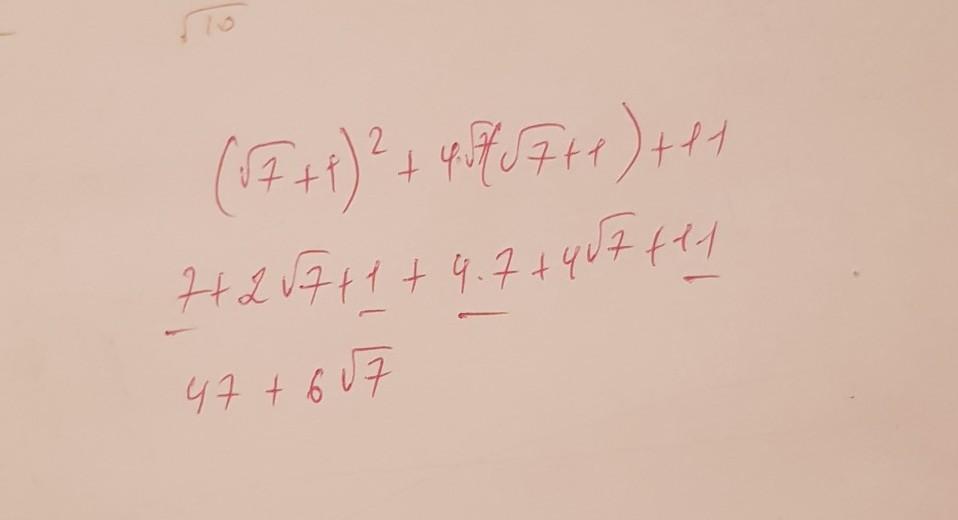 √10
(√7+1)² + 4√7(√7+1)+11
7+2√7+1 + 4.7+4√7+11
47 + 6√7